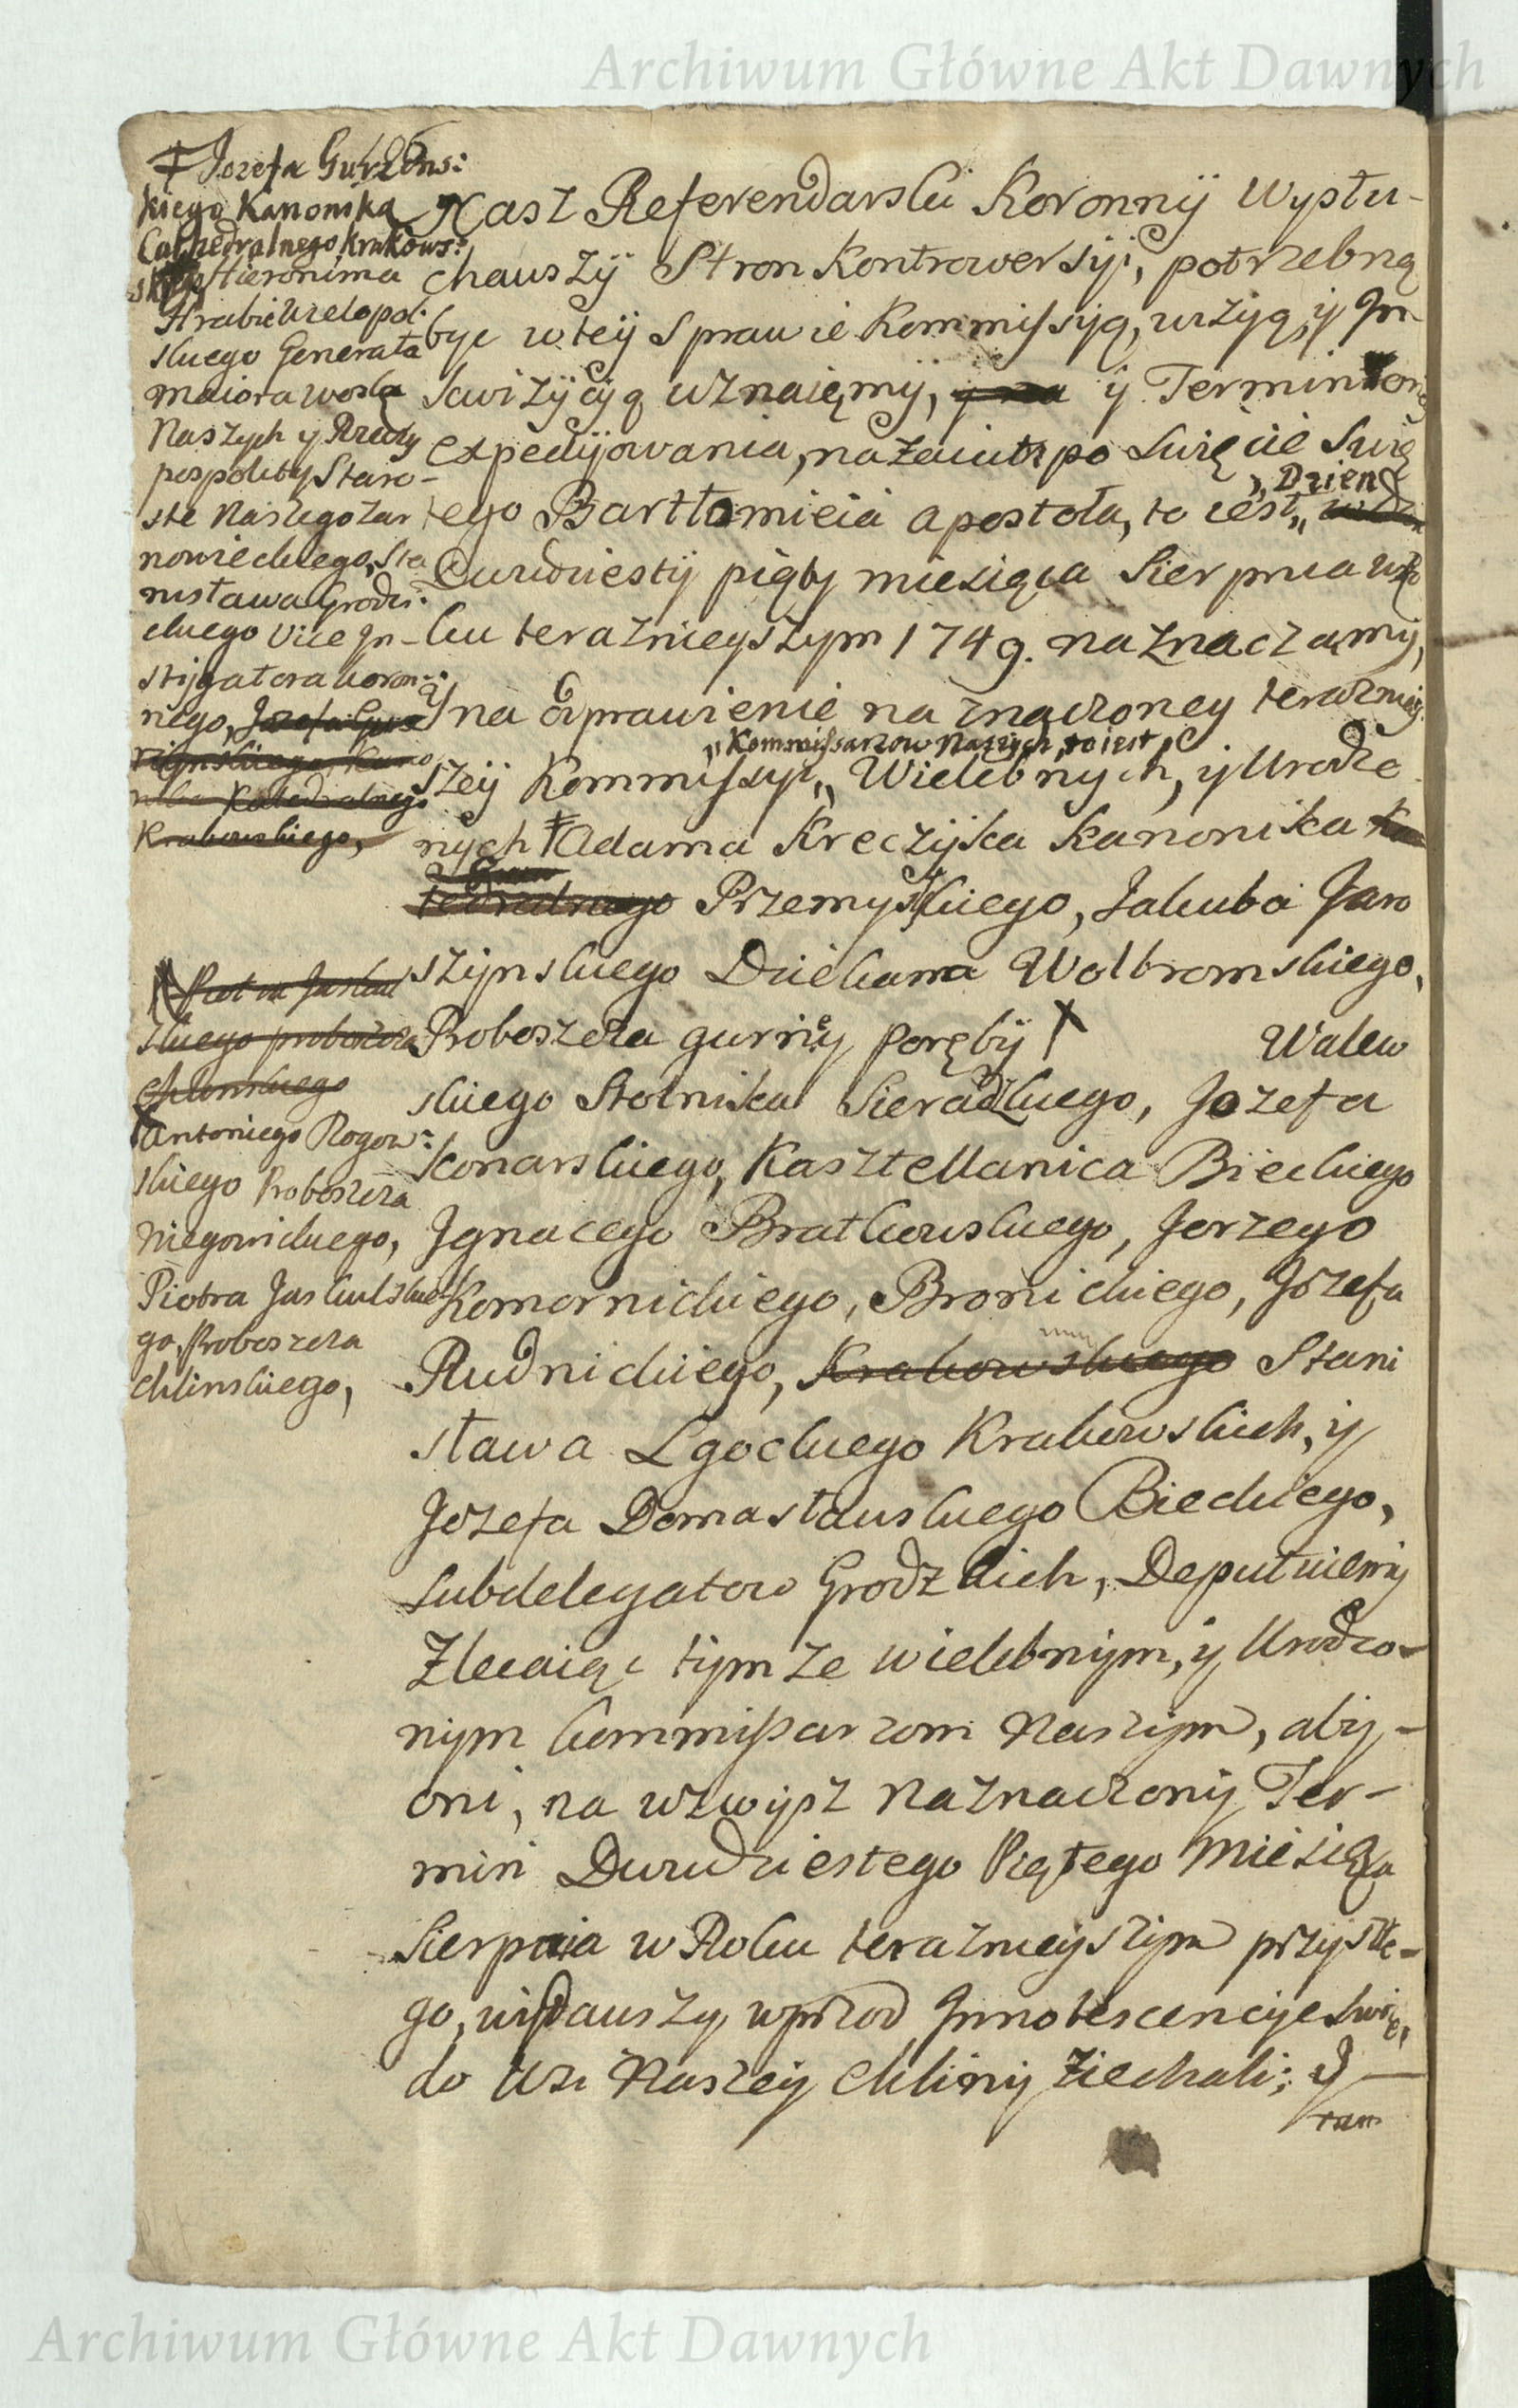 Archiwum Główne Akt Dawnych
‡ Jozefa Gurzens:
kiego Kanonika
Cathedralnego Krakows:
Hieronima
Hrabie Wielopol:
skiego Generała
Maiora woysk
Naszych y Rzeczy
pospolity Staro-
ste Naszego Żar
nowieckiego, Sta
nisława Grodzi:
ckiego Vice In-
stygatora koron:
nego, Jozefa
Kano
nika Katedralnego
Krakowskiego,
Piotra Jaskul
skiego proboszcza
Chlinskiego
X Antoniego Rogow:
skiego Proboszcza
Niegowickiego,
Piotra Jaskulskie
go, Proboszcza
Chlinskiego,
Nasz Referendarski Koronny Wysłu-
chauszy Stron Kontrowersyi, potrzebną
byc w tey Sprawie Kommissyą, wizyą, y In-
kwizycyą uznaięmy, y Termin
expedyowania, nazaiutrz po Swięcie Swię
tego Bartłomieia Apostoła, to iest „ Dzien
Dwudziesty piąty miesiąca Sierpnia w Ro
ku teraznieyszym 1749. naznaczamy,
y na odprawienie naznaczoney terazniey:
„ Kommissarzow Naszych, to iest
szey Kommissyi „ Wielebnych, y Urodzo
nych ‡ Adama Kreczyka Kanonika
Przemyskiego, Jakuba Jaro
szynskiego Dziekana Wolbromskiego,
Proboszcza gurney Poręby X Walew
skiego Stolnika Sieradzkiego, Jozefa
Konarskiego, Kasztellanica Bieckiego
Ignacego Bratkowskiego, Jerzego
Komornickiego, Bronickiego, Jozefa
Rudnickiego, Krakowskiego Stani
sława Lgockiego Krakowskich, y
Jozefa Domasławskiego Bieckiego,
Subdelegatow Grodzkich, Deputuiemy
Zlecaiąc tymze wielebnym, y Urodzo-
nym kommissarzom Naszym, aby-
oni, na wzwysz Naznaczony Ter-
min Dwudziestego Piątego Miesiąca
Sierpnia w Roku teraznieyszym przyszłe-
go, wydauszy wprzod Innotescencye swoię,
do Wsi Naszey Chliny Ziechali; y
tam
Archiwum Główne Akt Dawnych